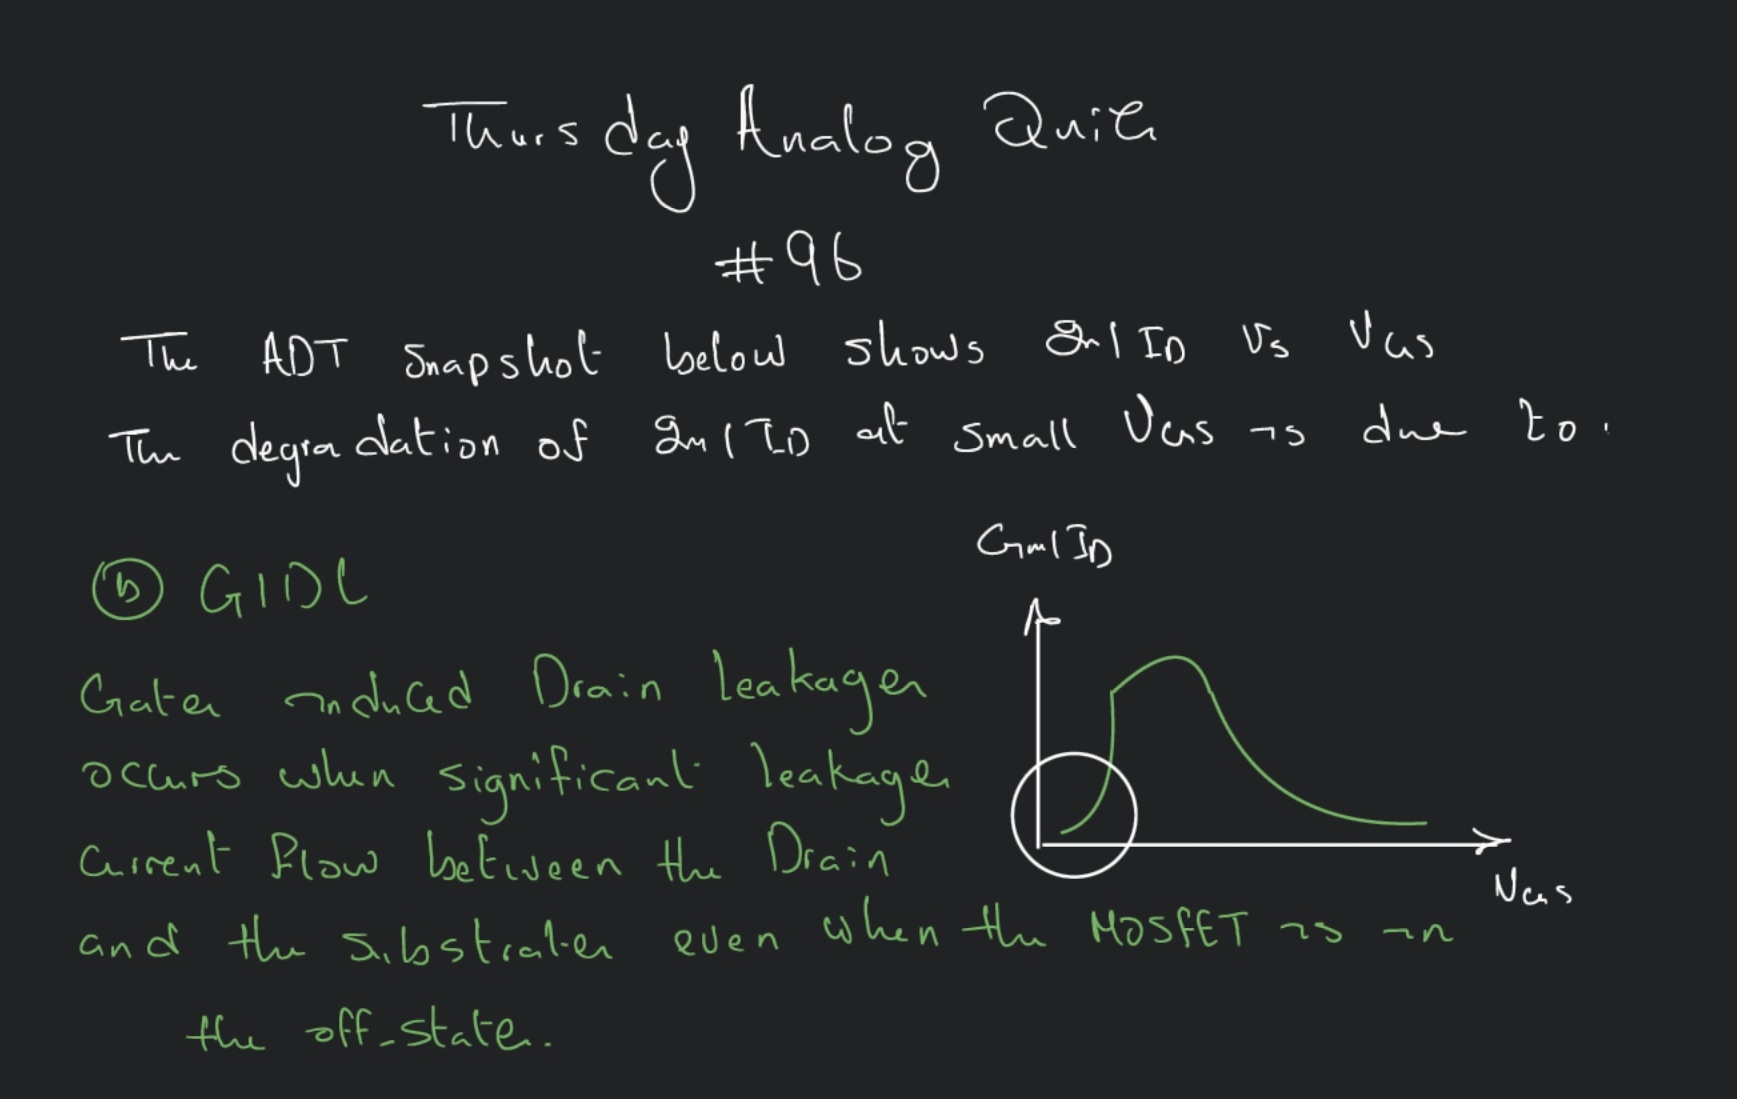 Thursday Analog Quiz
#96
The ADT Snapshot below shows gm/ID Vs VGS
The degradation of gm/ID at small VGS is due to.
Gm/ID
(b) GIDL
Gate induced Drain leakage
occurs when significant leakage
current flow between the Drain
and the substrate even when the MOSFET is in
the off-state.
VGS